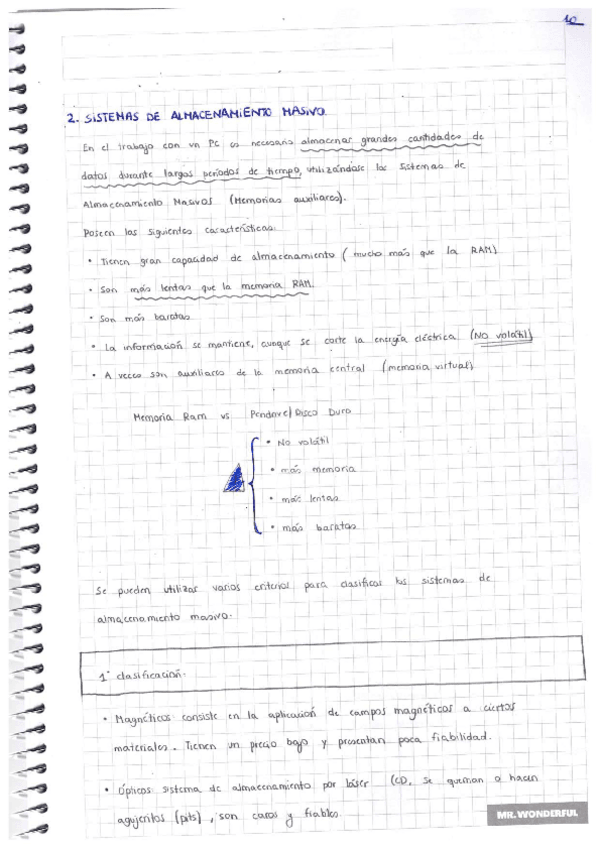 10
2. SISTEMAS DE ALMACENAMIENTO MASIVO.
En el trabajo con un PC es necesario almacenar grandes cantidades de
datos durante largos periodos de tiempo, utilizándose los Sistemas de
Almacenamiento Masivos (Memorias auxiliares).
Poseen las siguientes características:
• Tienen gran capacidad de almacenamiento (mucho más que la RAM)
• Son más lentas que la memoria RAM.
• Son más baratas
• La información se mantiene, aunque se corte la energía eléctrica (NO volátil)
• A veces son auxiliares de la memoria central (memoria virtual)
Memoria Ram vs Pendrive/Disco Duro
• No volátil
• más memoria
• más lentas
• más baratas
Se pueden utilizar varios criterios para clasificar los sistemas de
almacenamiento masivo.
1ª clasificación.
• Magnéticos consiste en la aplicación de campos magnéticos a ciertos
materiales. Tienen un precio bajo y presentan poca fiabilidad.
• Ópticos sistema de almacenamiento por láser (CD, se queman o hacen
agujeritos (pits), son caros y fiables.
MR. WONDERFUL